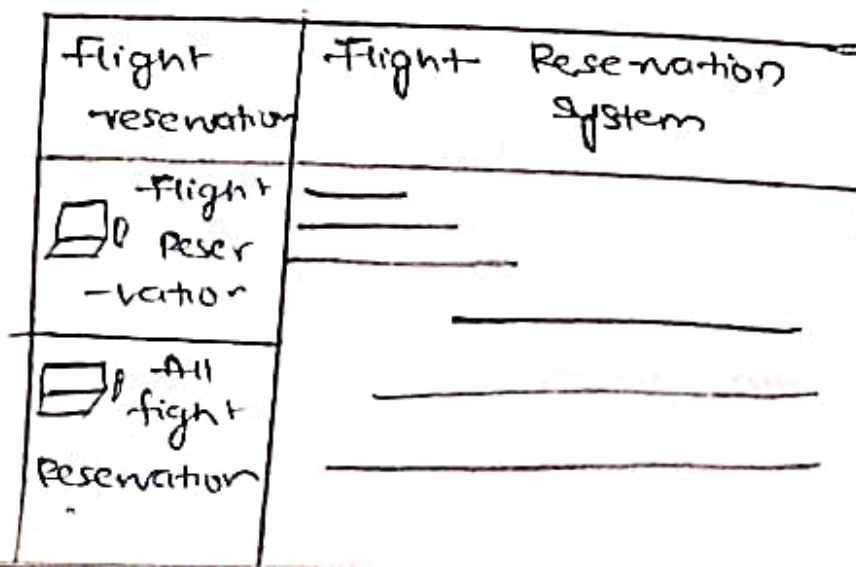 flight
reservation
Flight Reservation
System
Flight
Reser
-vation
All
fight
Reservation